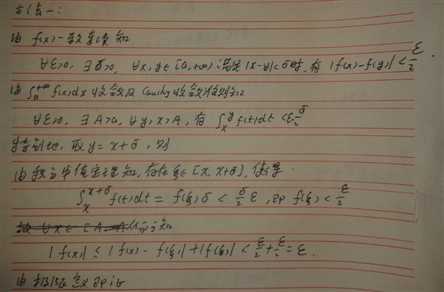 方法一:
由 f(x)一致连续知
∀ε>0, ∃δ>0, ∀x,y∈[a,+∞) 满足 |x-y|<δ时, 有 |f(x)-f(y)| < ε/2
由 ∫ₐ^{+∞} f(x)dx 收敛及 Cauchy 收敛准则知
∀ε>0, ∃A>a, ∀y,x>A, 有 ∫ₓ^y f(t)dt < ε δ/2
特别地, 取 y = x+δ, 则
由积分中值定理知, 存在 ξ∈[x, x+δ], 使得
∫ₓ^{x+δ} f(t)dt = f(ξ)δ < δ/2 ε, 即 f(ξ) < ε/2
|f(x)| ≤ |f(x) - f(ξ)| + |f(ξ)| < ε/2 + ε/2 = ε.
由极限定义即证